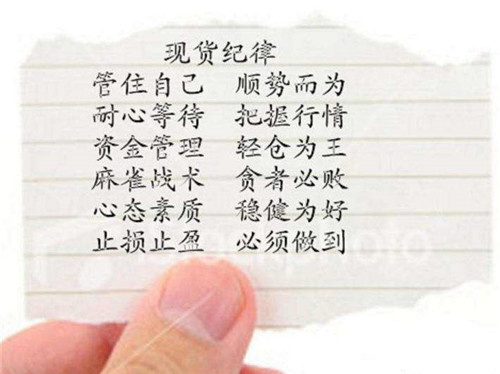 现货纪律
管住自己 顺势而为
耐心等待 把握行情
资金管理 轻仓为王
麻雀战术 贪者必败
心态素质 稳健为好
止损止盈 必须做到